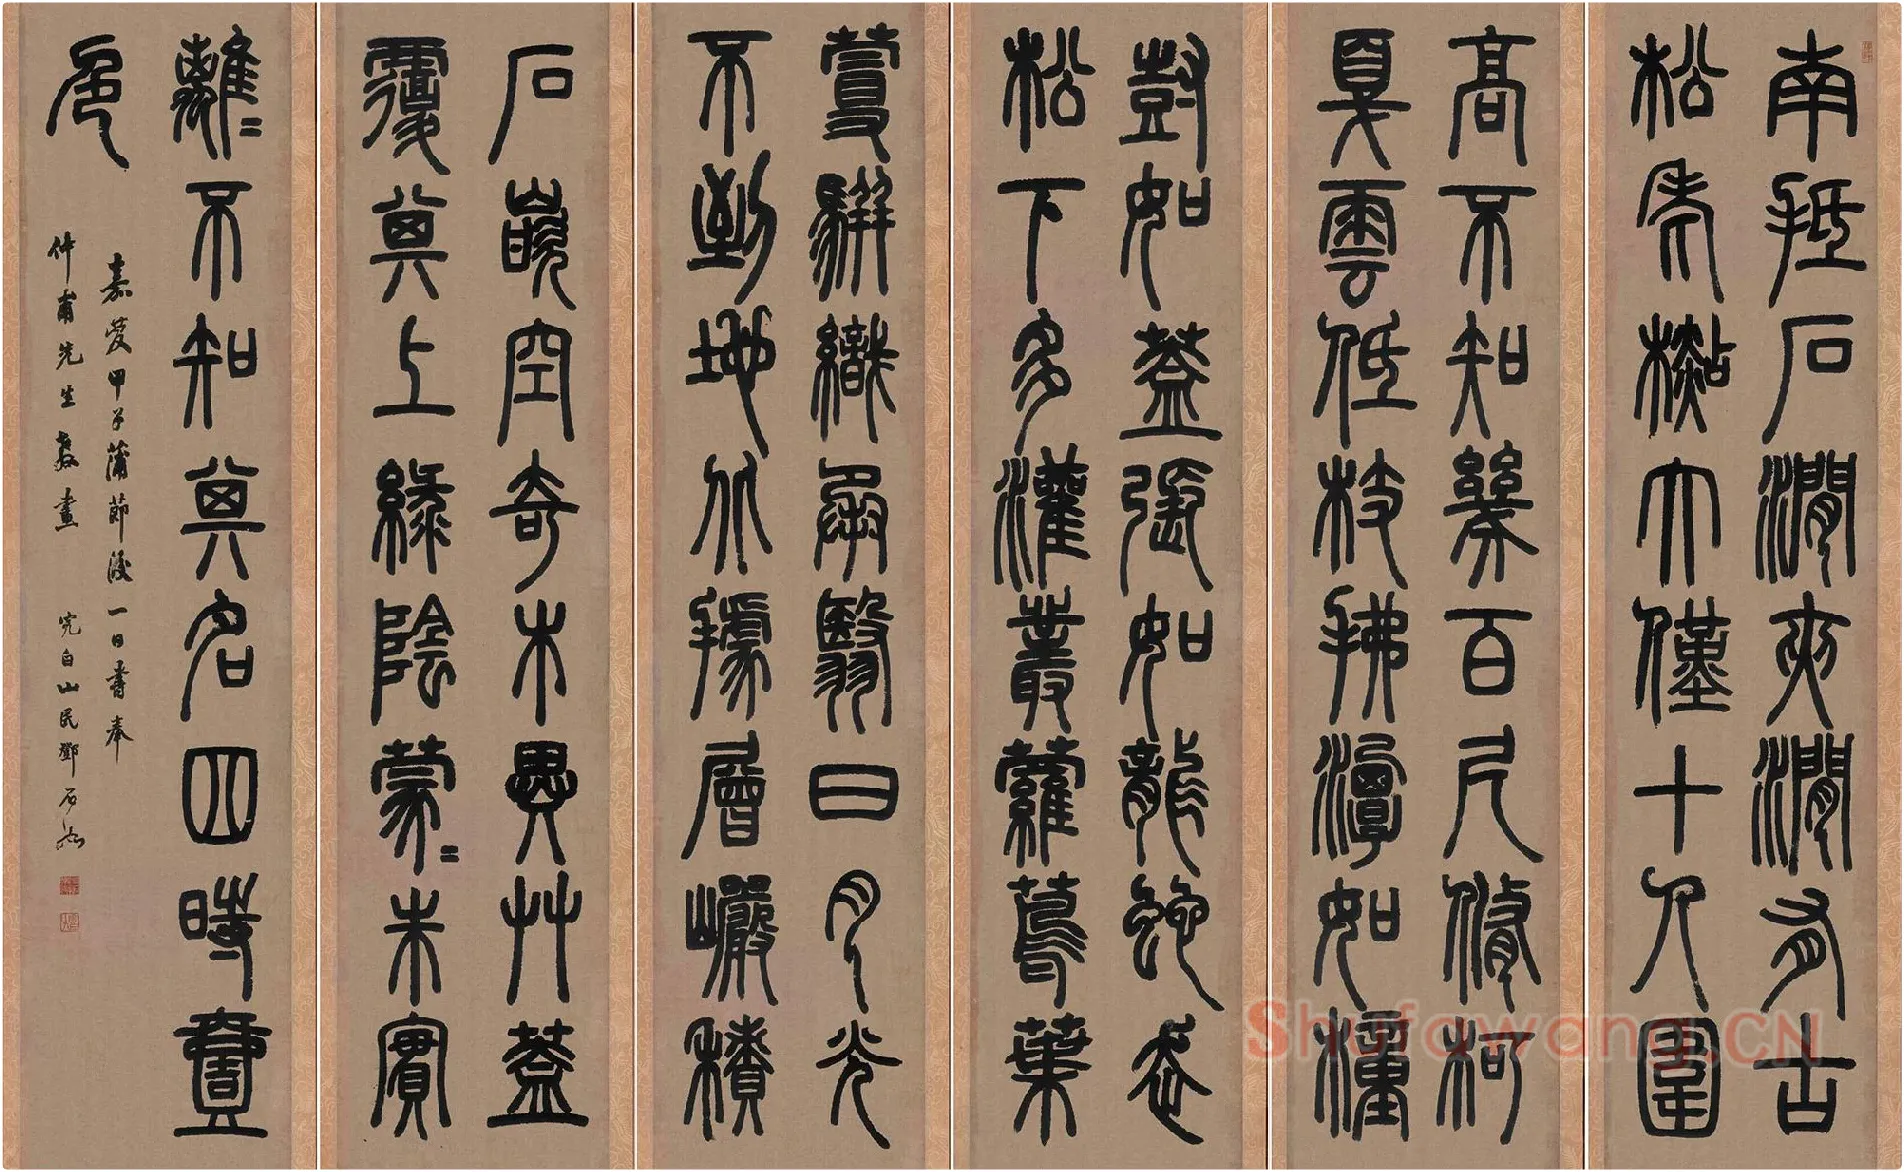 南抵石澗夾澗有古
松老檆大僅十人圍
高不知幾百尺脩柯
戛雲低枝拂潭如幢
尌如蓋張如龍蛇走
松下多灌叢蘿蔦葉
蔓駢織承翳日月光
不到地北據層巖積
石嵌空奇木異艸蓋
覆其上綠陰蒙〻朱實
離〻不知其名四時壹
色
嘉慶甲子蒲節後一日書奉
仲甫先生教畫 完白山民鄧石如
Shufawang.CN